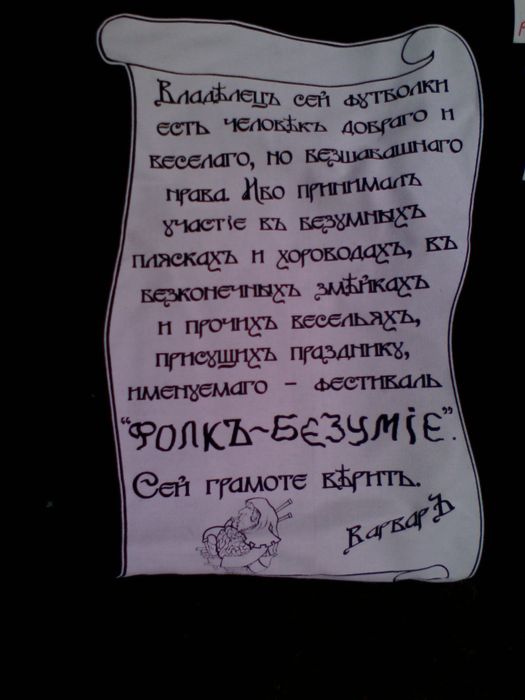 Владѣлецъ сей футболки
есть человѣкъ добраго и
веселаго, но безшабашнаго
нрава. Ибо принималъ
участіе въ безумныхъ
пляскахъ и хороводахъ, въ
безконечныхъ змѣйкахъ
и прочихъ весельяхъ,
присущихъ празднику,
именуемаго - фестиваль
"ФОЛКЪ~БЕЗУМІЕ".
Сей грамоте вѣрить.
ВарварЪ